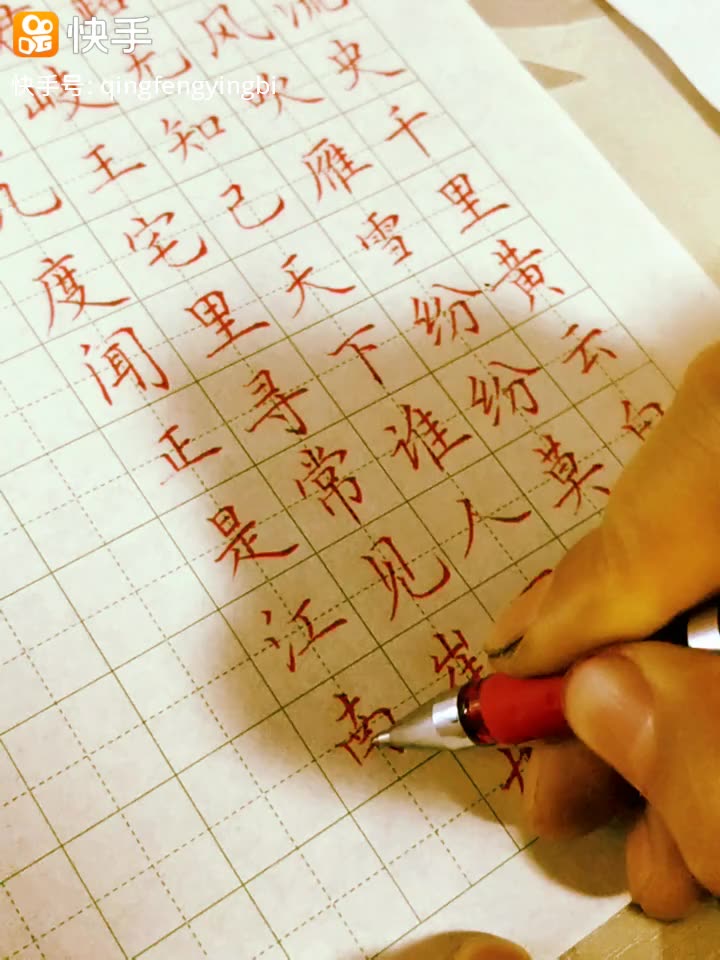 流央千里黄云白
风吹雁雪纷纷莫
路无知己天下谁人
岐王宅里寻常见崔
几度闻正是江南
快手
快手号: qingfengyingbi